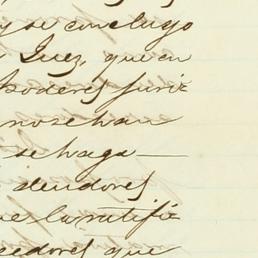 y se concluyo
Juez, que en
poderes juris
no se han
se haga —
deudores
ue la ratifi=
eedores que